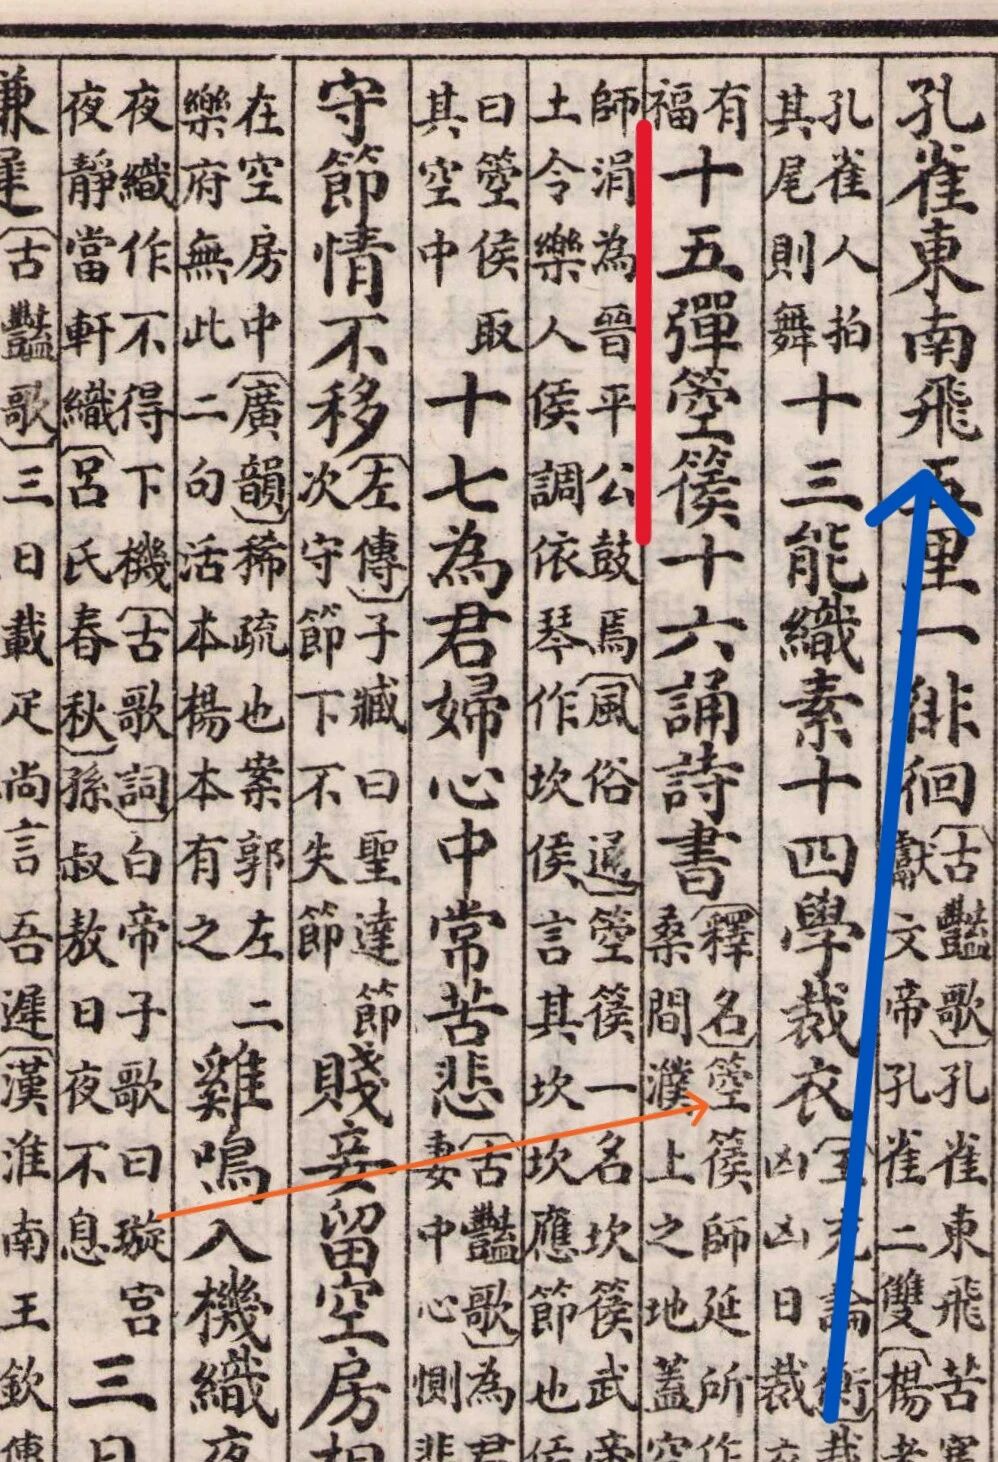 孔雀東南飛五里一徘徊〔古豔歌〕孔雀東飛苦寒
獻文帝孔雀二雙〔楊孝
孔雀人拍
其尾則舞十三能織素十四學裁衣〔王充論衡〕裁
凶凶日裁衣
有
福十五彈箜篌十六誦詩書〔釋名〕箜篌師延所作
桑間濮上之地蓋空
師涓為晉平公鼓焉〔風俗通〕箜篌一名坎篌武帝
土令樂人侯調依琴作坎侯言其坎坎應節也侯
曰箜侯取
其空中十七為君婦心中常苦悲〔古豔歌〕為君
妻中心惻悲
守節情不移〔左傳〕子臧曰聖達節
次守節下不失節賤妾留空房相
在空房中〔廣韻〕稀疏也案郭左二
樂府無此二句活本楊本有之雞鳴入機織夜
夜織作不得下機〔古歌詞〕白帝子歌曰璇宮
夜靜當軒織〔呂氏春秋〕孫叔敖日夜不息三日
〔古豔歌〕三日載疋尚言吾遲〔漢淮南王欽傳